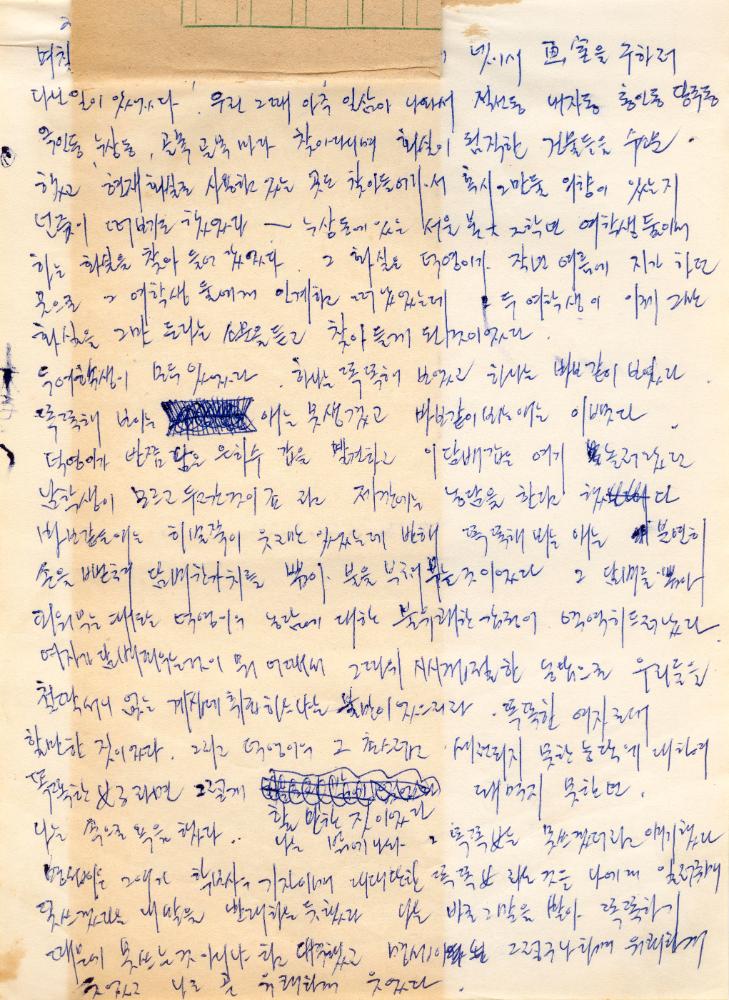 며칠 넷이서 画室을 구하러
다닌 일이 있었다. 우린 그때 아주 일삼아 나와서 적선동 내자동 통인동 당주동
옥인동, 누상동, 골목 골목마다 찾아다니며 화실이 됨직한 건물들을 수소문
했고 현재 화실로 사용하고 있는 곳도 찾아들어가서 혹시 그만둘 의향이 있는지
넌즛이 떠보기도 했었다 — 누상동에 있는 서울 2학년 여학생 둘이서
하는 화실을 찾아 들어갔었다. 그 화실은 덕영이가 작년 여름에 지가 하던
곳으로 그 여학생들에게 인계하고 떠났었는데 그 두 여학생이 이제 그만
화실을 그만 둔다는 소문을 듣고 찾아 들게 된 것이었다.
두 여학생이 모두 있었다. 하나는 똑똑해 보였고 하나는 바보같이 보였다.
똑똑해 보이는 애는 못생겼고 바보같이 보이는 애는 이뻤다.
덕영이가 반쯤 남은 은하수 갑을 발견하고 이 담배갑은 여기 놀러왔던
남학생이 모르고 두고 간 것이죠 라고 제깐에는 농담을 한다고 했다
바보같은 애는 히쭉이 웃고만 있었는데 반해 똑똑해 뵈는 애는 분연히
손을 뻗쳐 담배 한가치를 뽑아 불을 부쳐 무는 것이었다 그 담배를 뽑아
피워무는 태도는 덕영이의 농담에 대한 불유쾌한 감정이 역역히 드러났다.
여자가 담배 피우는 것이 뭐 어때서 그따위 시시껄절한 농담으로 우리들을
철딱서니 없는 계집애 취급하느냐는 불만이 있으리라. 똑똑한 여자로서
할 만한 짓이었다. 그리고 덕영이의 그 촌스럽고 세련되지 못한 농담에 대하여
똑똑한 女子라면 그렇게 때먹지 못한 년.
할 만한 짓이었다
나는 속으로 욕을 했다.. 나는 밖에 나와 그 똑똑女는 못쓰겠더라고 얘기했다
그 애가 기자이며 대단한 똑똑女라는 것을 나에게 일러주며
못쓰겠다는 내 말을 반대하는 듯했다 나는 바로 그 말을 받아 똑똑하기
때문에 못쓰는 것 아니냐 하고 대꾸했고 그렇구나 하며 유쾌하게
웃었고 나도 곧 유쾌하게 웃었다.